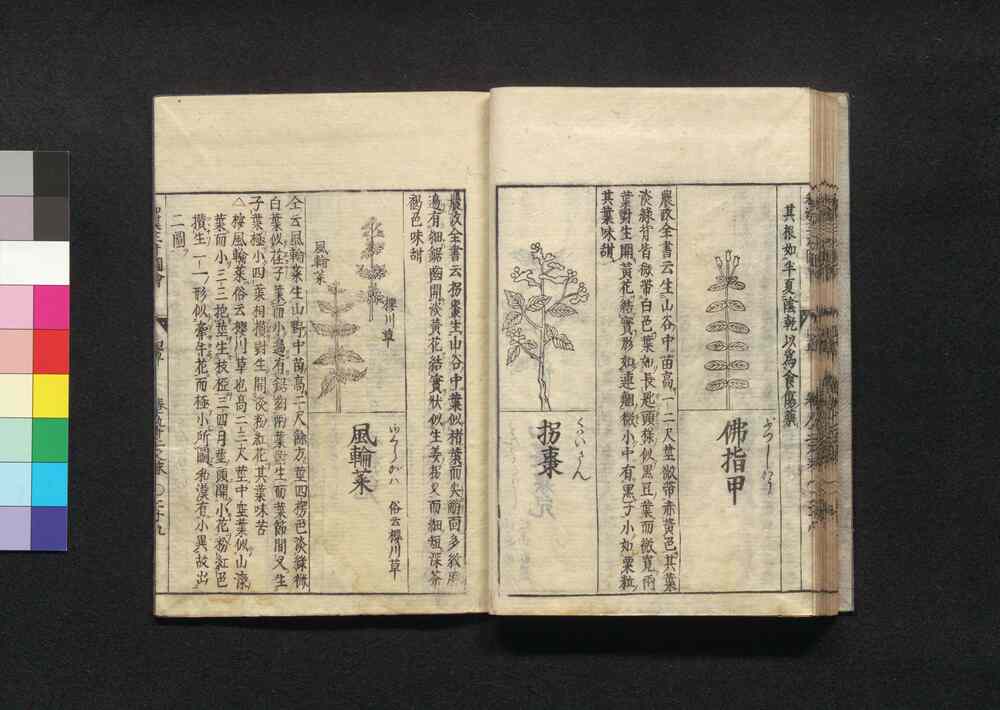 其根如半夏陰乾以爲食傷藥
佛指甲
農政全書云生山谷中苗高一二尺莖微帶赤黃色其葉
淡綠背皆微帶白色葉如長匙頭樣似黑豆葉而微寬兩
葉對生開黃花結實形如連翹微小中有黑子小如粟粒
其葉味甜
拐棗
農政全書云拐棗生山谷中葉似楮葉而尖䚡面多紋脈
邉有細鋸齒開淡黃花結實狀似生姜拐叉而細短深茶
褐色味甜
風輪菜
俗云櫻川草
櫻川草
風輪菜
仝云風輪菜生山野中苗高二尺餘方莖四楞色淡綠微
白葉似荏子葉而小邉有鋸齒兩葉對生而葉節間又生
子葉極小四葉相攅對生開淡粉紅花其葉味苦
△按風輪菜俗云櫻川草也高二三尺莖中空葉似山漆
葉而小三三抱莖生枝椏三四月莖頭開小花粉紅色
攅生一一形似牽牛花而極小所圖和漢有小異故出
二圖